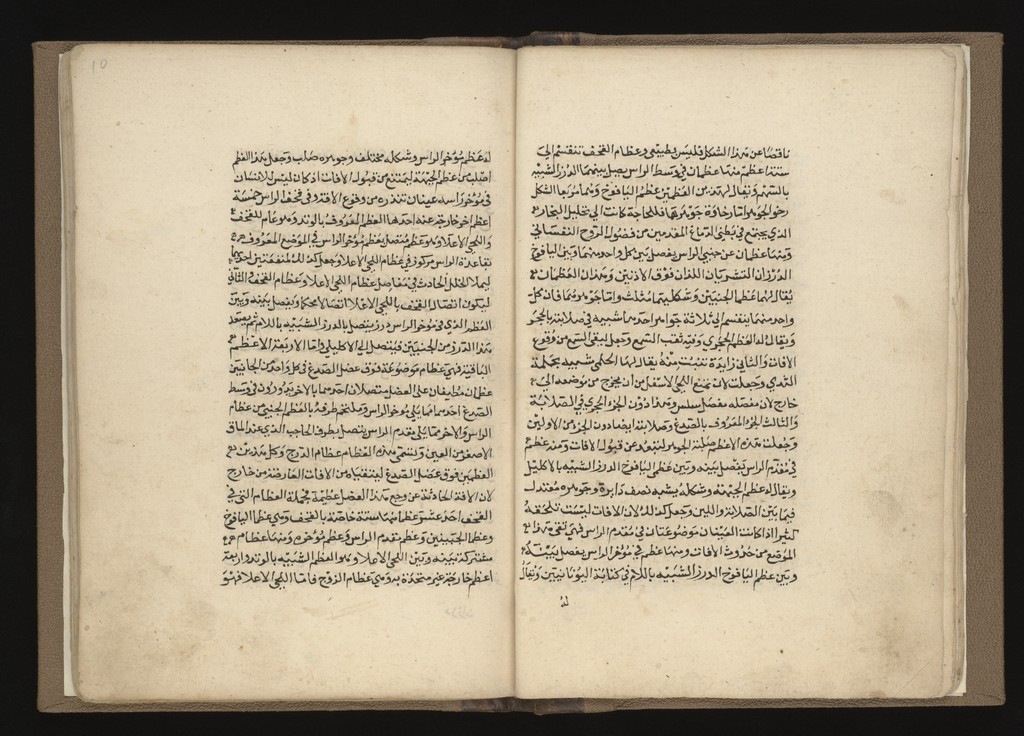 ناقصا عن هذا الشكل فليس بطبيعي وعظام القحف تنقسم الي
ستة اعظم منها عظمان في وسط الراس يصل بينهما الدرز الشبيه
بالسهم ويقال لهذين العظمين عظما اليافوخ وهما مربعا الشكل
رخو الجوهر اما رخاوة جوهرهما فللحاجة كانت الي تحليل البخار
الذي يجتمع في بطني الدماغ المقدمين من فضول الروح النفساني
ومنها عظمان عن جنبي الراس يفصل بين كل واحد منهما وبين اليافوخ
الدرزان القشريان اللذان فوق الاذنين وهذان العظمان
يقال لهما عظما الجنبين وشكليهما مثلث واما جوهرهما فان كل
واحد منهما ينقسم الي ثلاثة جواهر احدها شبيه في صلابته بالحجر
ويقال له العظم الحجري وفيه ثقب السمع وجعل ليقي السمع من وقوع
الافات والثاني زايدة تنبت منه يقال لها الحلمي شبيه بحلمة
الثدي وجعلت لان تمنع اللحي الاسفل من ان يخرج من موضعه الي
خارج لان مفصله مفصل سلس وهذا دون الجزء الحجري في الصلابة
والثالث الجزء المعروف بالصدغ وصلابته ايضا دون الجزءين الاولين
وجعلت هذه الاعظم صلبة الجوهر لتبعد عن قبول الافات ومنه عظم
في مقدم الراس يفصل بينه وبين عظمي اليافوخ الدرز الشبيه بالاكليل
ويقال له عظم الجبهة وشكله يشبه نصف دايرة وجوهره معتدل
فيما بين الصلابة واللين وجعل كذلك لان الافات ليست تلحقه
كثيرا اذ كانت العينان موضوعتان في مقدم الراس فهي تقي هذا
الموضع من حدوث الافات ومنها عظم في مؤخر الراس يفصل بينه
وبين عظمي اليافوخ الدرز الشبيه باللام في كتابة اليونانيين ويقال
له
له عظم مؤخر الراس وشكله مختلف وجوهره صلب وجعل هذا العظم
اصلب من عظم الجبهة ليمتنع من قبول الافات اذ كان ليس للانسان
في مؤخر راسه عينان تنذره من وقوع الافة وفي قحف الراس خمسة
اعظم اخر خارجة عنه احدها العظم المعروف بالوتد وهو عام للقحف
واللحي الاعلا وهو عظم متصل بعظم مؤخر الراس في الموضع المعروف
بقاعدة الراس مركوز في عظام اللحي الاعلا وجعل كذلك لمنفعتين احديهما
ليملا الخلل الحادث في مفاصل عظام اللحي الاعلا وعظام القحف والثاني
ليكون اتصال القحف باللحي الاعلا اتصالا محكما ويفصل بينه وبين
العظم الذي في مؤخر الراس درز يتصل بالدرز الشبيه باللام ثم يصعد
هذا الدرز من الجنبين فيتصل الي الاكليلي واما الاربعة الاعظم
الباقية فهي عظام موضوعة فوق عضل الصدغ في كل واحد من الجانبين
عظمان مطيفان علي العضل يتصلان احدهما بالاخر بدرزدون في وسط
الصدغ احدهما مما يلي مؤخر الراس وملتحم طرفه بالعظم الجنبي من عظام
الراس والاخر مما يلي مقدم الراس يتصل بطرف الحاجب الذي عند الماق
الاصغر من العين وتسمي هذه العظام عظام الزوج وكل هذين
العظمين فوق عضل الصدغ ليتقيانه من الافات العارضة من خارج
لان الافة الحادثة عن وجع هذا العضل عظيمة فجملة العظام التي في
القحف احد عشر عظما منها ستة خاصة بالقحف وهي عظما اليافوخ
وعظما الجنبين وعظم مقدم الراس وعظم مؤخره ومنها عظام
مشتركة بينه وبين اللحي الاعلا وهو العظم الشبيه بالوتد واربعة
اعظم خارجة غير متحدة به وهي عظام الزوج فاما اللحي الاعلا فهو